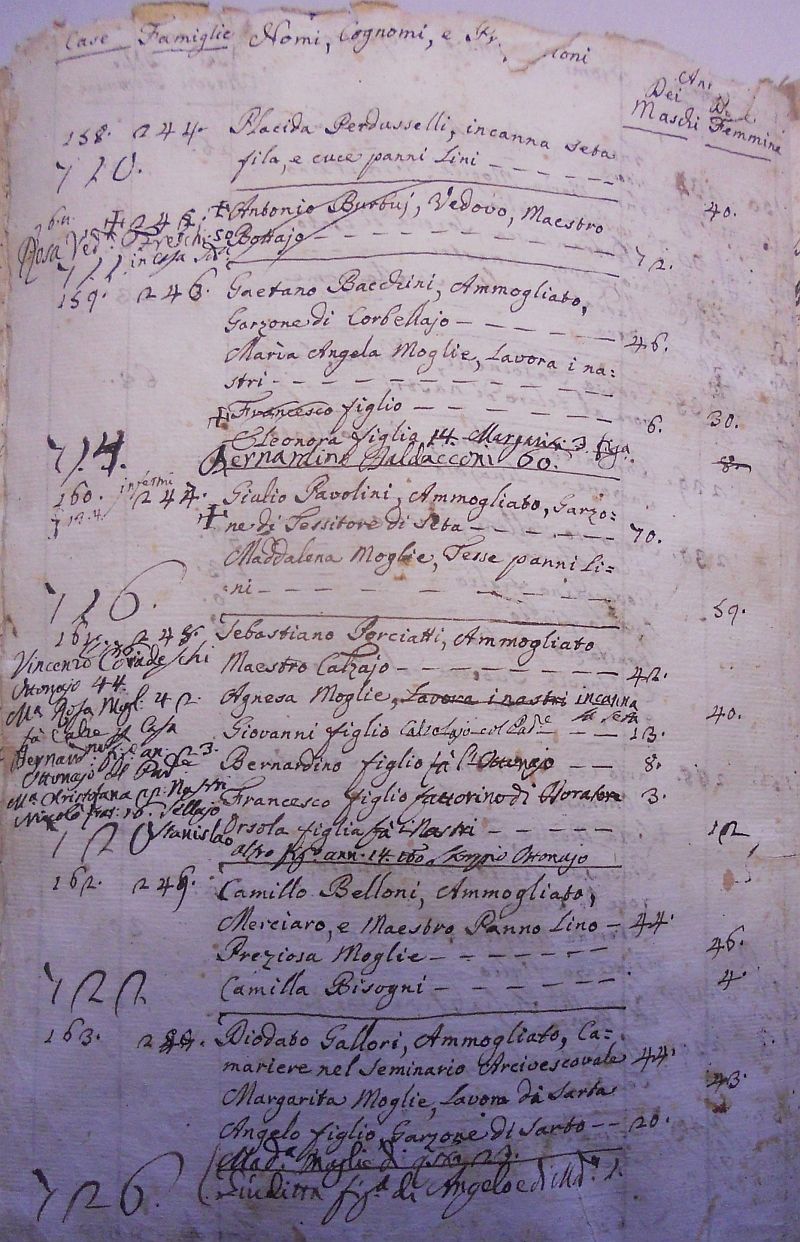 Case Famiglie Nomi, Cognomi, e
Dei Maschi
Femmine
158. 244. Placida Perdusselli, incanna seta
fila, e cuce panni Lini 40.
710.
+ 245. + Antonio Burbuj, Vedovo, Maestro
Rosa Ved.
Bottajo 72.
in casa
711
159. 246. Gaetano Bacchini, Ammogliato,
Garzone di Corbellajo 46.
Maria Angela Moglie, Lavora i na=
stri 30.
+ Francesco figlio 6.
Eleonora figlia 14. Margarita 3. figa. 8.
714. Bernardino Baldacconi 60.
infermi
160. 247. Giulio Pavolini, Ammogliato, Garzo=
+ ne di Tessitore di Seta 70.
Maddalena Moglie, Tesse panni Li=
ni 59.
716.
161. 248. Sebastiano Porciatti, Ammogliato
Maestro Calzajo 42.
Vincenzo Corradeschi
Ottonajo 44.
Agnesa Moglie, Lavora i nastri incanna
la seta 40.
Ma. Rosa Mogl. 42.
fà Calze in Casa
Giovanni figlio Calzolajo col Pade. 13.
Bernardino figlio fà l'Ottonajo 8.
Ottonajo col Pade.
Francesco figlio fattorino di 3.
Ma. Cristofana 17. Nastri
Niccolò 16. Sellajo
Orsola figlia fà i Nastri 12
Stanislao
altro figo. ann. 14. Ottonajo
720
162. 249. Camillo Belloni, Ammogliato,
Merciaro, e Maestro Panno Lino 44.
Preziosa Moglie 46.
Camilla Bisogni 4.
722
163. Diodato Gallori, Ammogliato, Ca=
mariere nel Seminario Arcivescovale 44.
Margarita Moglie, Lavora di Sarta 43.
Angelo figlio, Garzone di Sarto 20.
Madª. Moglie di 23.
Giuditta figª. di Angelo e di Mª. 1.
726.